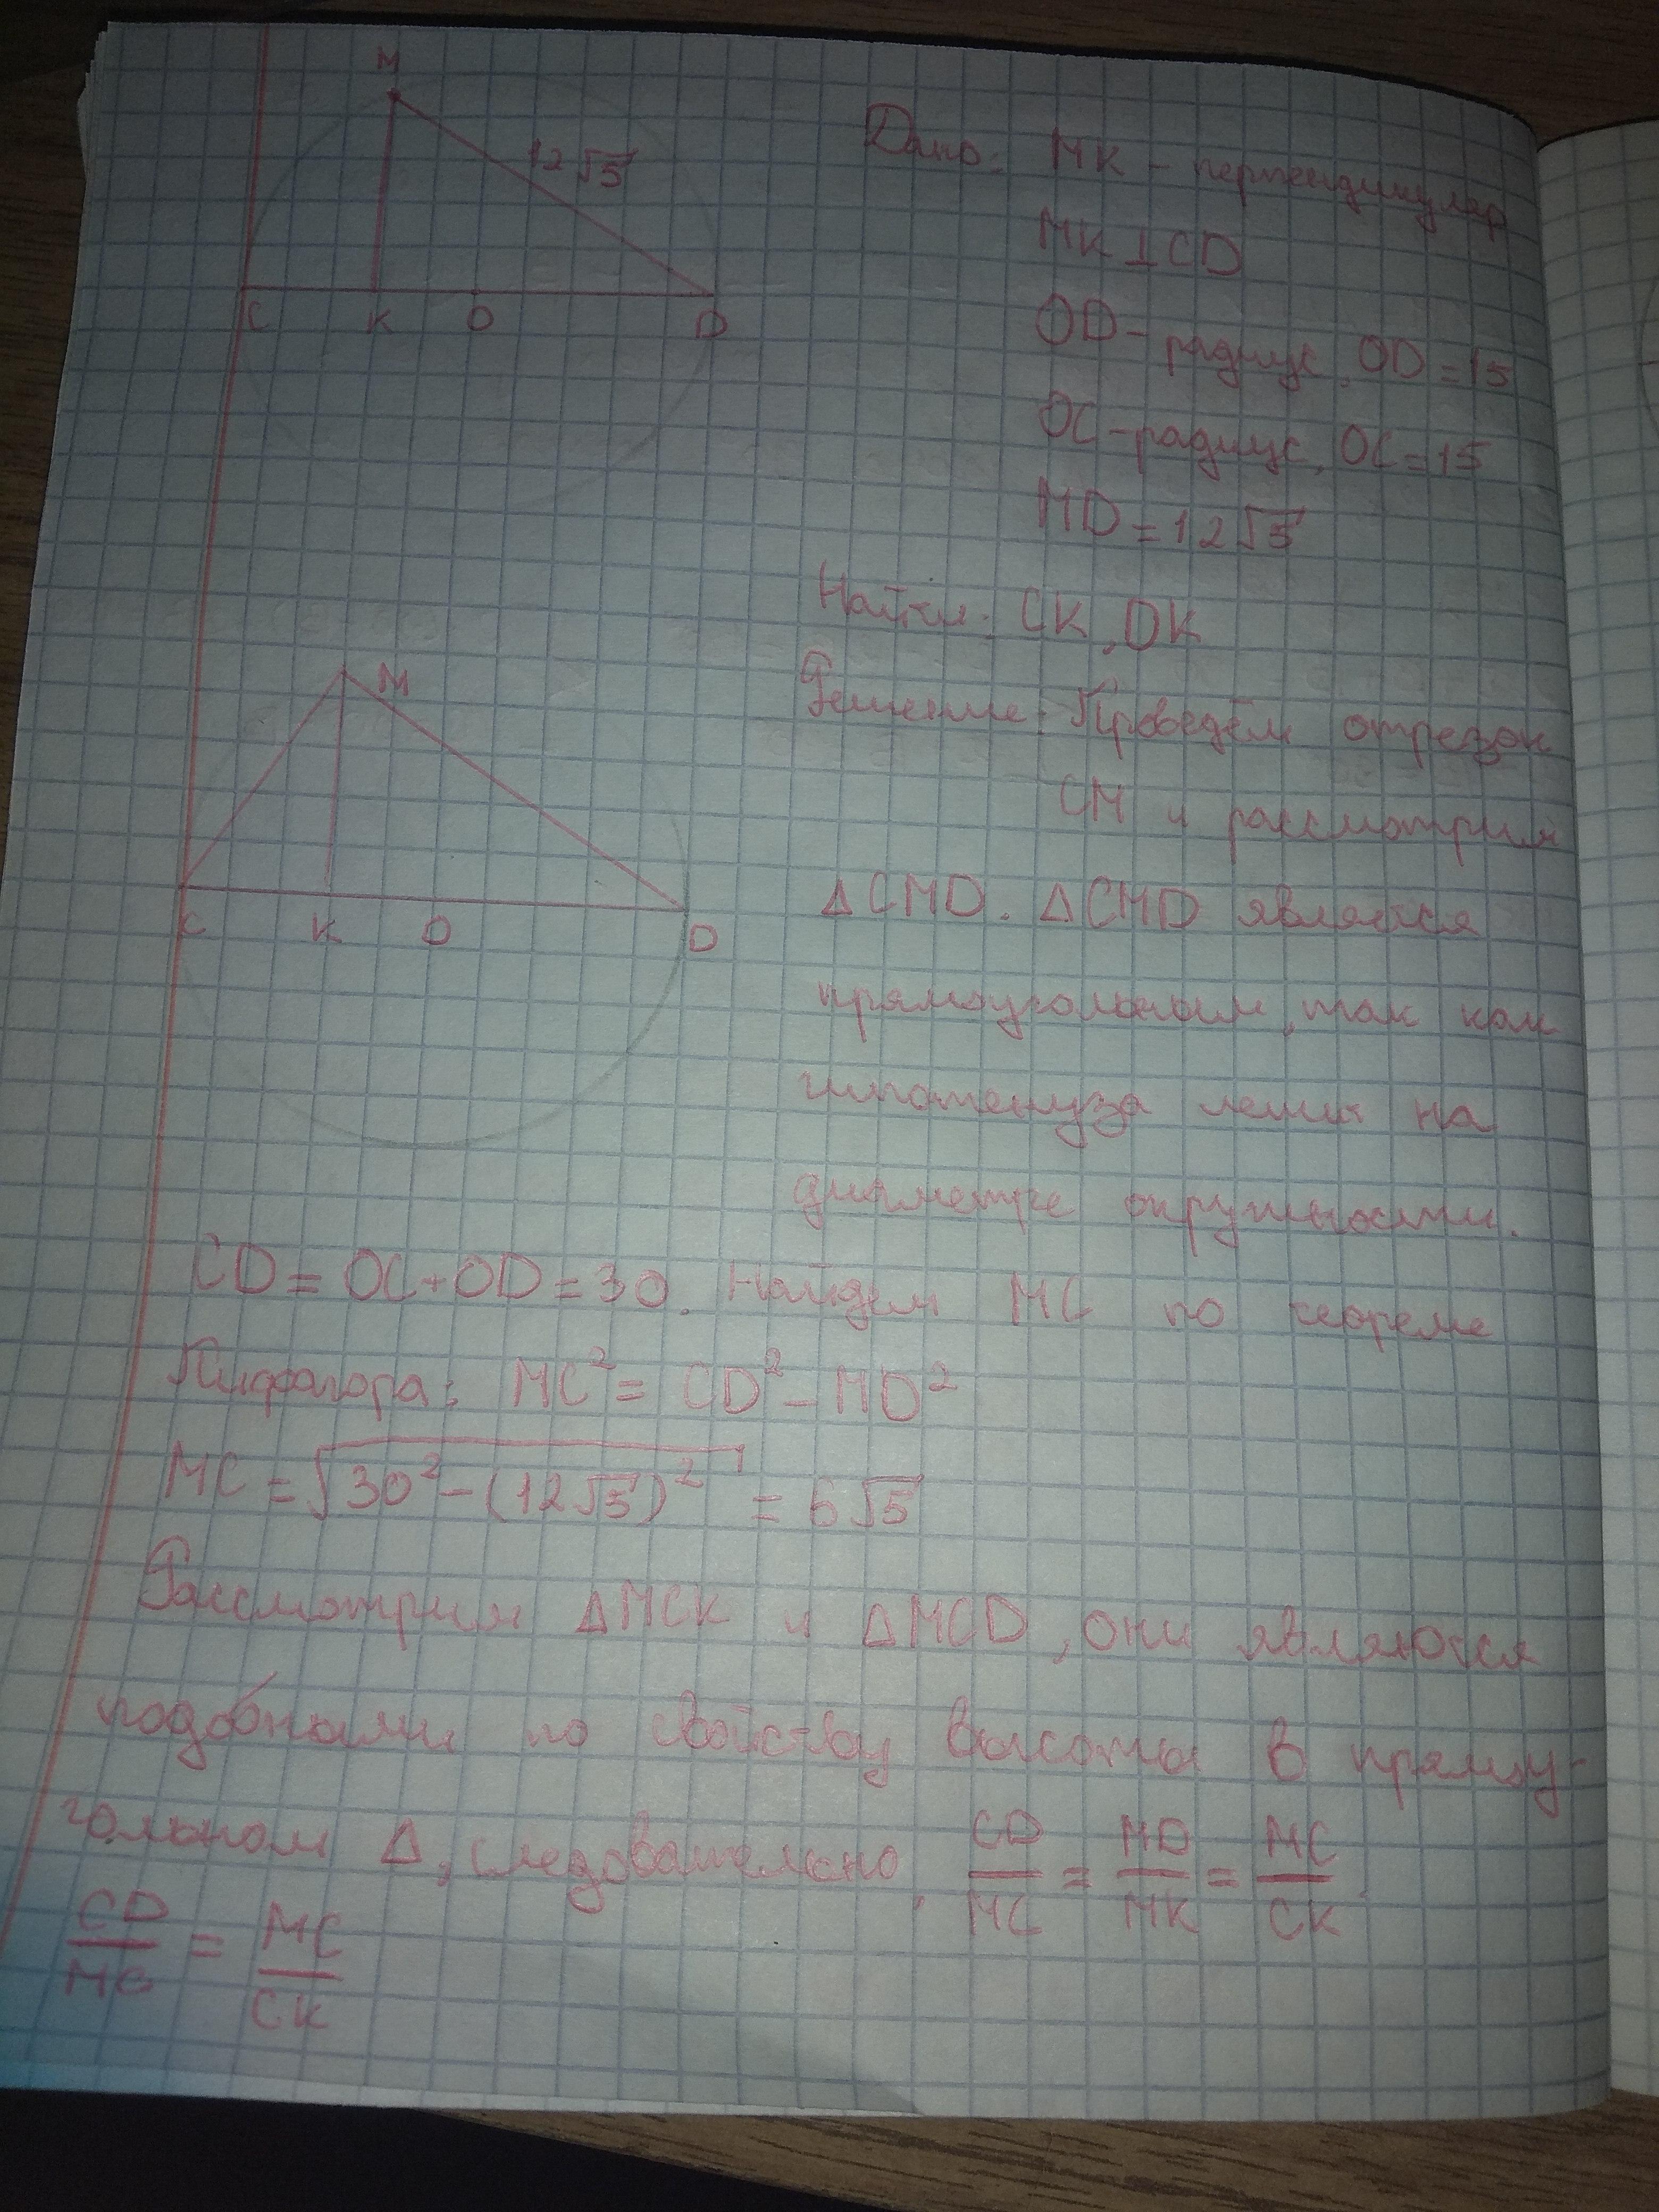 M
12√5
C K O D
Дано: MK - перпендикуляр
MK ⊥ CD
OD - радиус, OD = 15
OC - радиус, OC = 15
MD = 12√5
Найти: CK, DK
M
C K O D
Решение: Проведём отрезок
CM и рассмотрим
△CMD. △CMD является
прямоугольным, так как
гипотенуза лежит на
диаметре окружности.
CD = OC + OD = 30. Найдем MC по теореме
Пифагора: MC² = CD² - MD²
MC = √(30² - (12√5)²) = 6√5
Рассмотрим △MCK и △MCD, они являются
подобными по свойству высоты в прямоу-
гольном △, следовательно, CD/MC = MD/MK = MC/CK.
CD/MC = MC/CK